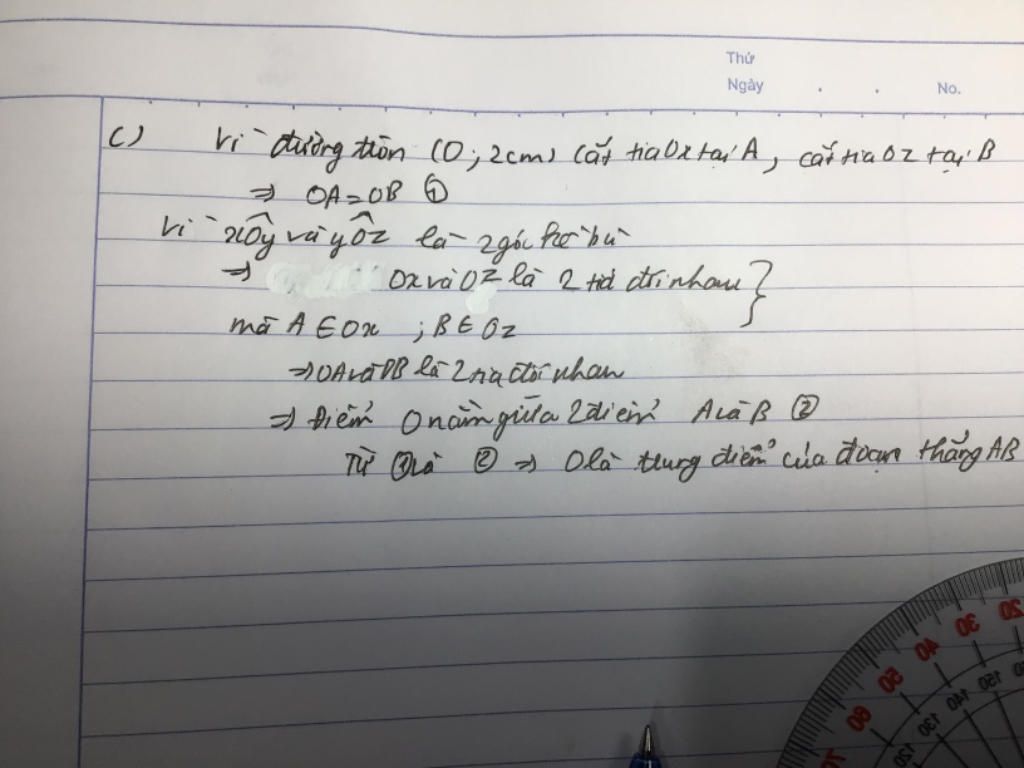 Thứ
Ngày . . No.
c) Vì đường tròn (O; 2cm) cắt tia Ox tại A, cắt tia Oz tại B
⇒ OA = OB ①
Vì xÔy và yÔz là 2 góc kề bù
⇒ Ox và Oz là 2 tia đối nhau }
mà A ∈ Ox ; B ∈ Oz
⇒ OA và OB là 2 tia đối nhau
⇒ Điểm O nằm giữa 2 điểm A và B ②
Từ ① và ② ⇒ O là trung điểm của đoạn thẳng AB
20
30
40
50
60
70
150
140
130
120